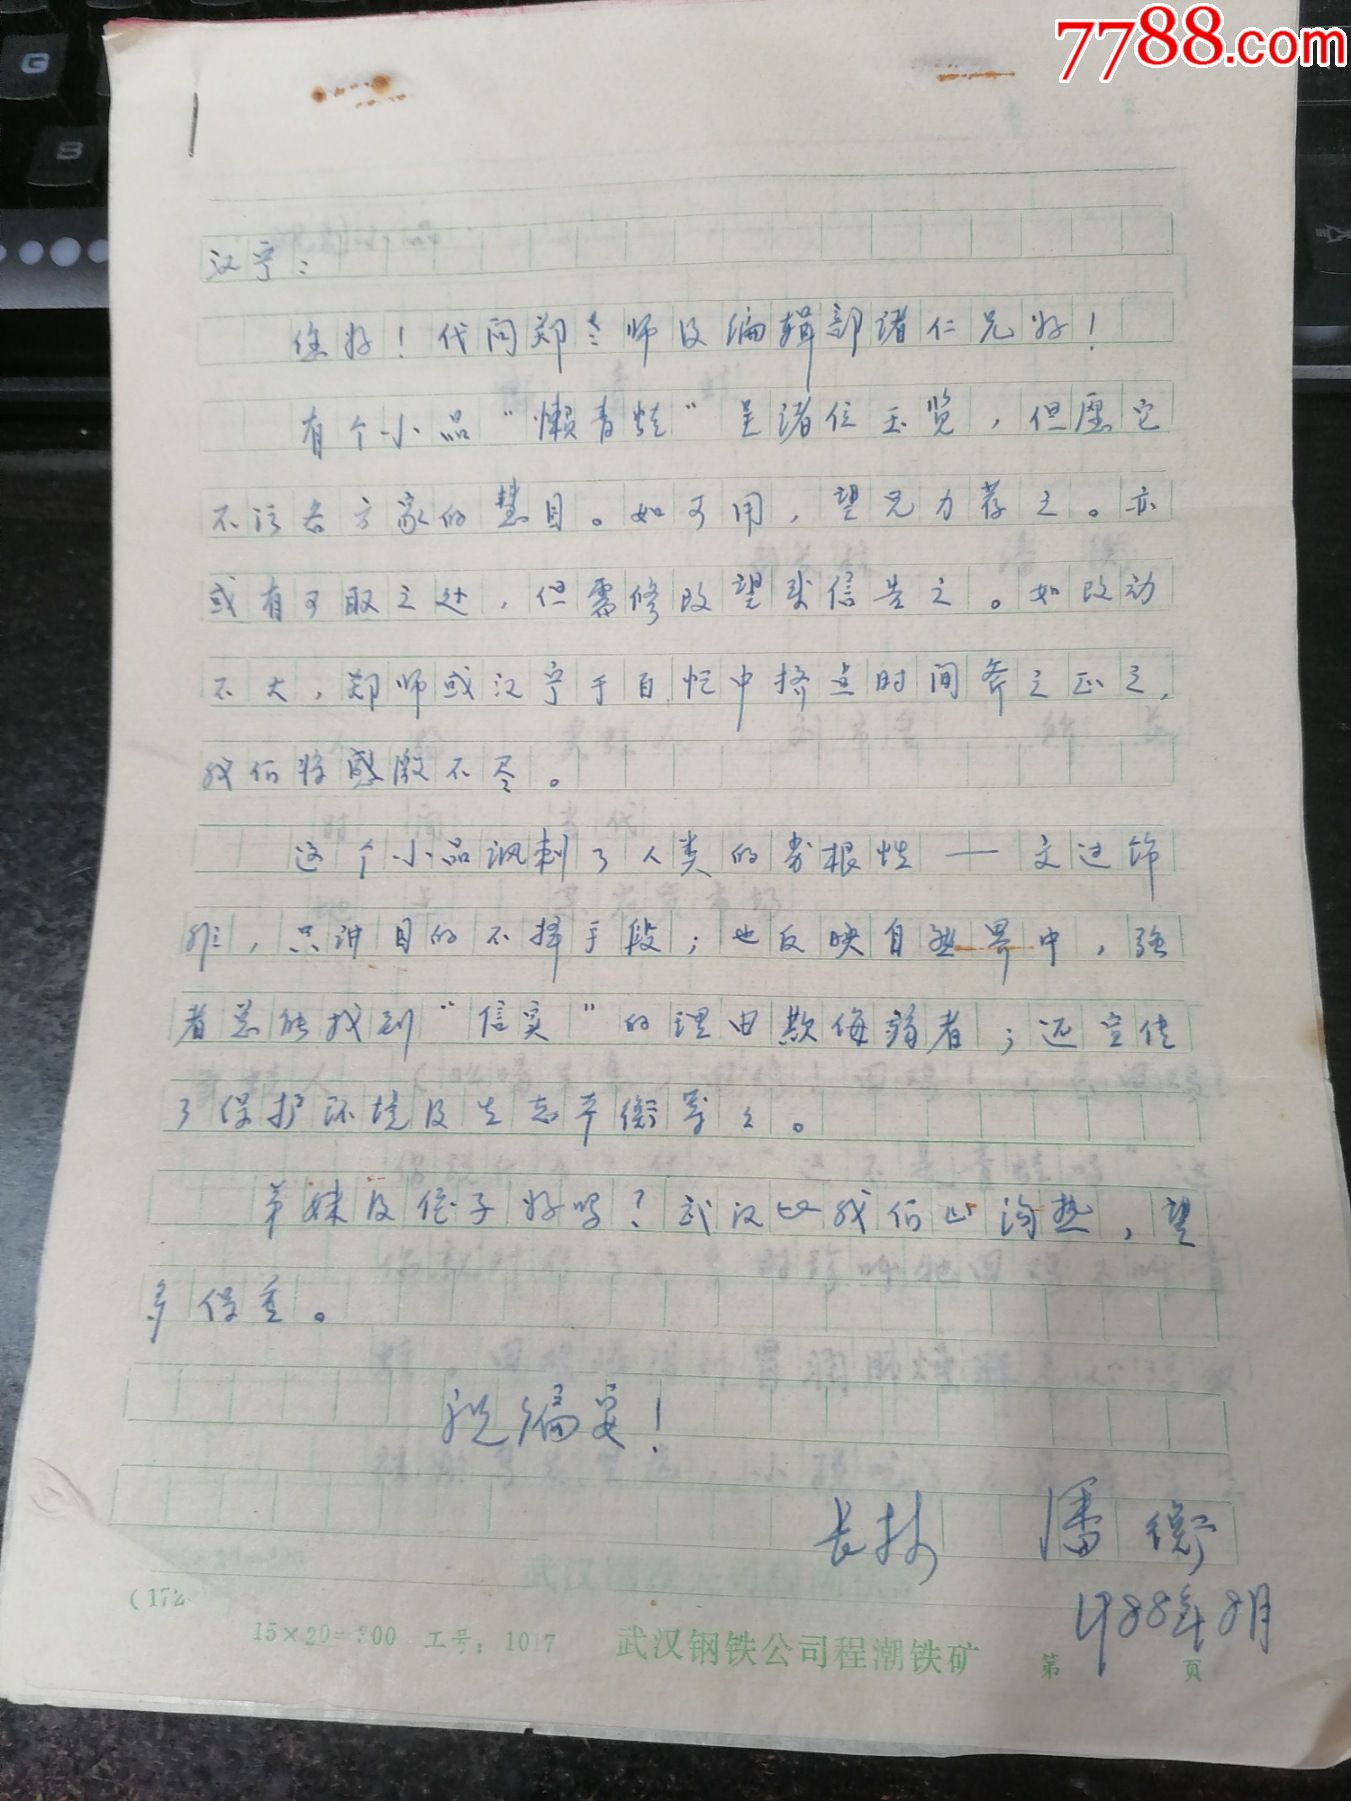 7788.com
汉宁：
您好！代问郑老师及编辑部诸仁兄好！
有个小品“懒青蛙”呈诸位玉览，但愿它
不污各方家的慧目。如可用，望兄力荐之。亦
或有可取之处，但需修改望来信告之。如改动
不大，郑师或汉宁于百忙中挤点时间斧之正之，
我们将感激不尽。
这个小品讽刺了人类的劣根性——文过饰
非，只讲目的不择手段；也反映自然界中，强
者总能找到“信实”的理由欺侮弱者；还宣传
了保护环境及生态平衡等之。
弟妹及侄子好吗？武汉比我们山沟热，望
多保重。
祝编安！
长林 潘衡
1988年8月
(172
15×20=300 工号：1017 武汉钢铁公司程潮铁矿 第 页